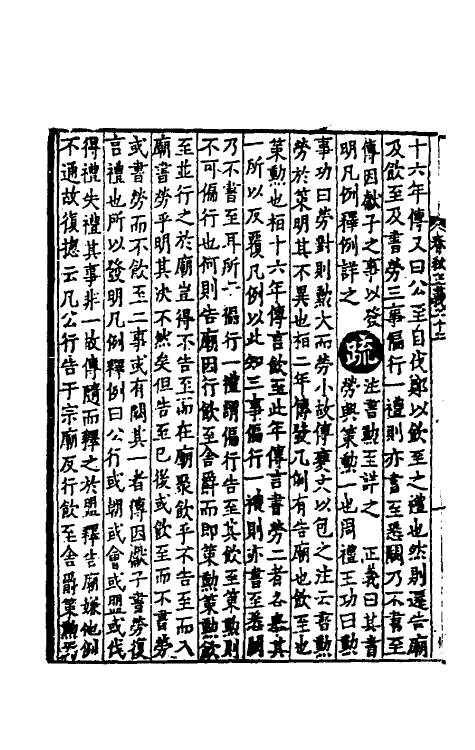 十六年傳又曰公至自伐鄭以飲至之禮也然則還告廟
及飲至及書勞三事偏行一禮則亦書至悉闕乃不書至
傳因獻子之事以發
明凡例釋例詳之 疏 注書勳至詳之 正義曰其書
勞與策勳一也周禮王功曰勳
事功曰勞對則勳大而勞小故傳變文以包之注云書勳
勞於策明其不異也桓二年傳發凡例有告廟也飲至也
策勳也桓十六年傳言飲至此年傳言書勞二者各舉其
一所以反覆凡例以此知三事偏行一禮則亦書至悉闕
乃不書至耳所云偏行一禮謂偏行告至其飲至策勳則
不可偏行也何則告廟因行飲至舍爵而即策勳策勳飲
至並行之於廟豈得不告至而在廟聚飲乎不告至而入
廟書勞乎明其決不然矣但告至已後或飲至而不書勞
或書勞而不飲至二事或有闕其一者傳因獻子書勞復
言禮也所以發明凡例釋例曰公行或朝或會或盟或伐
得禮失禮其事非一故傳隨而釋之於盟釋告廟嫌他例
不通故復揔云凡公行告于宗廟反行飲至舍爵策勳
春秋正義二十二